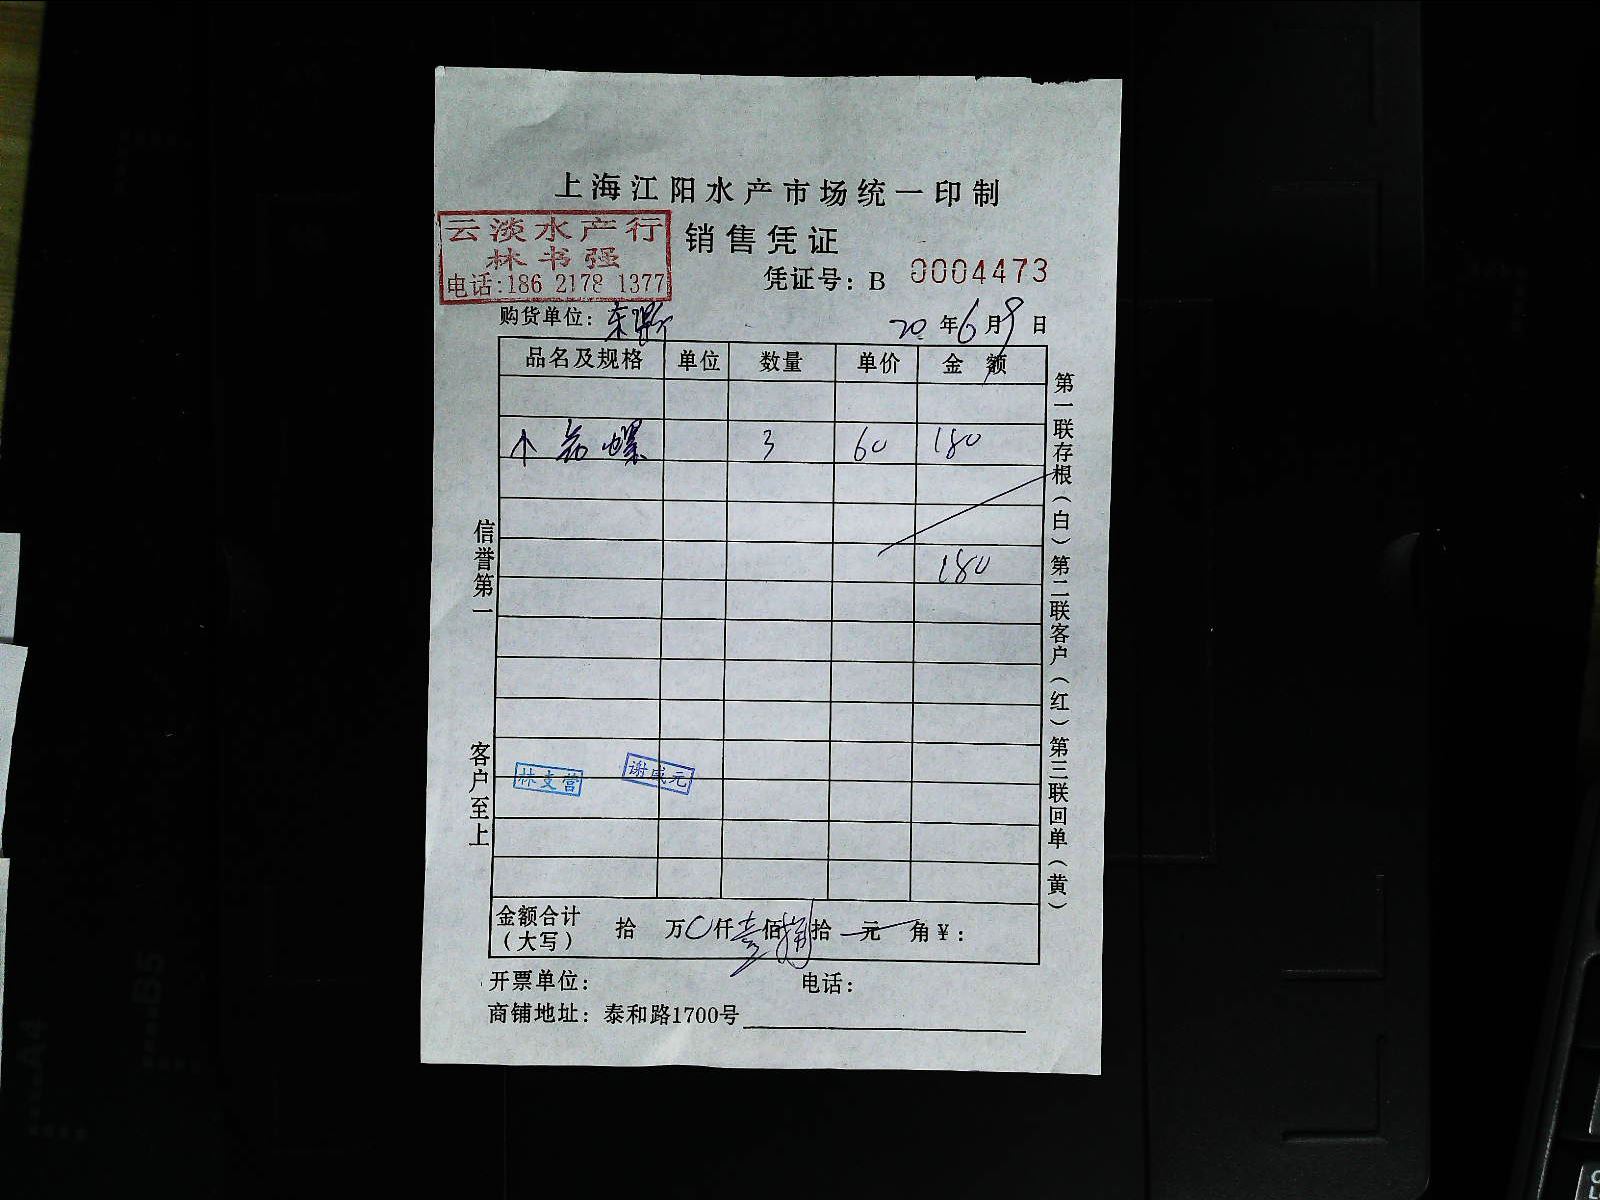 上海江阳水产市场统一印制
云淡水产行
林书强
电话:186 2178 1377
销售凭证
凭证号：B 0004473
购货单位：
20 年 6 月 9 日
品名及规格 单位 数量 单价 金 额
螺 3 60 180
180
信誉第一
客户至上
第一联存根（白）第二联客户（红）第三联回单（黄）
林支营
谢成元
金额合计（大写） 拾 万 0 仟 壹 佰 捌 拾 元 角 ¥：
开票单位： 电话：
商铺地址：泰和路1700号
A4
B5